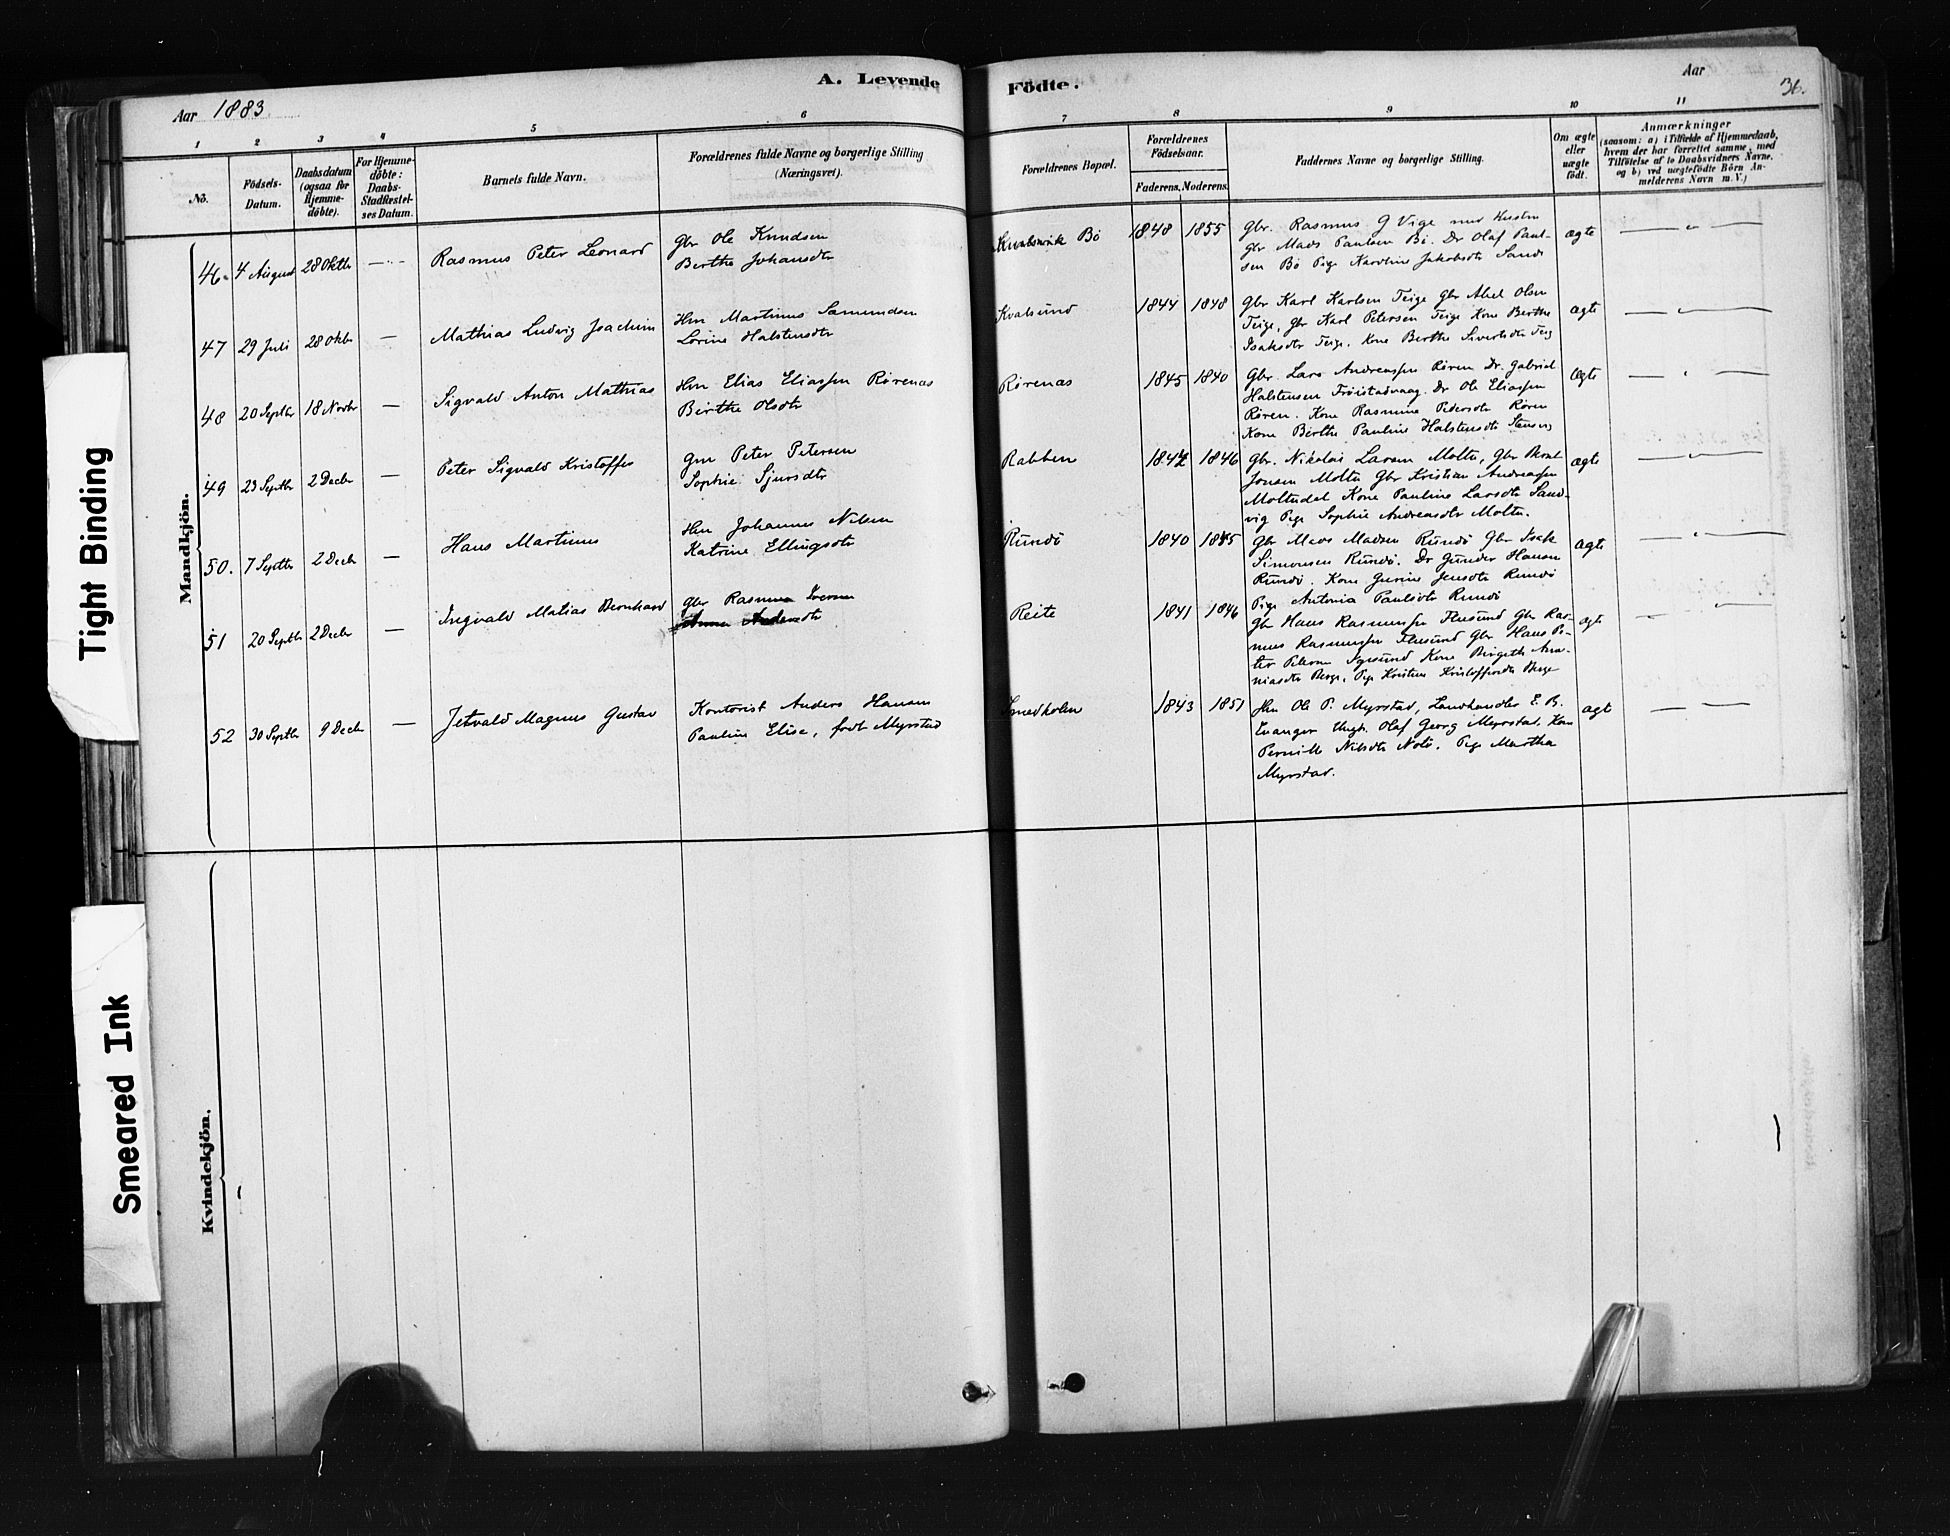 A. Levende
Födte.
Aar 1883
Aar
36.
1 2 3 4 5 6 7 8 9 10 11
No.
Födsels-
Datum.
Daabsdatum
(ogsaa for
Hjemme-
döbte).
For Hjemme-
döbte:
Daabs-
Stadfæstel-
ses Datum.
Barnets fulde Navn.
Forældrenes fulde Navne og borgerlige Stilling
(Næringsvei).
Forældrenes Bopæl.
Forældrenes
Födselsaar.
Faderens. Moderens.
Faddernes Navne og borgerlige Stilling.
Om ægte
eller
uægte
födt.
Anmærkninger
(saasom: a) i Tilfælde af Hjemmedaab,
hvem der har forrettet samme, med
Tilföielse af to Daabsvidners Navne,
og b) ved uægtefödte Börn An-
melderens Navn m. V.)
Mandkjön.
46. 4 August 28 Oktbr — Rasmus Peter Leonard
Gbr Ole Knudsen
Berthe Johansdtr
Bö 1848 1855
Gbr. Rasmus G Vige med Hustru
Gbr Mads Paulsen Bö. Dr Olaf Paul-
sen Bö Pige Karoline Jakobsdtr Sande
ægte
47 29 Juli 28 Oktbr — Mathias Ludvig Joachim
Hm Martinus Samundsen
Lovine Halstensdtr
Kvalsund 1844 1848
Gbr Karl Karlsen Teige Gbr Abel Olsen
Teige, Gbr Karl Petersen Teige Kone Berthe
Isaksdtr Teige. Kone Berthe Sivertsdtr Teig
ægte
48 20 Septbr 18 Novbr — Sigvald Anton Mathias
Hm Elias Eliassen Rörenæs
Birthe Olsdtr
Rörenæs 1845 1840
Gbr. Lars Andreassen Rören Dr. Gabriel
Halstensen Fröistadvaag. Dr Ole Eliassen
Rören. Kone Rasmine Pedersdtr Rören
Kone Berthe Pauline Halstensdtr
ægte
49 23 Septbr 2 Decbr — Peter Sigvald Kristoffer
Gm Peter Petersen
Sophie Sjursdtr
Rabben 1842 1846
Gbr. Nikolai Larsen Moltu, Gbr
Jonsen Moltu Gbr Kristian Andreassen
Moltudal Kone Pauline Larsdtr Sand-
vig Pige Sophie Andreasdtr Moltu.
ægte
50. 7 Septbr 2 Decbr — Hans Martinus
Hm Johannes Nilsen
Katrine Ellingsdtr
Rundö 1840 1845
Gbr Mads Madsen Rundö Gbr Isak
Simonsen Rundö. Dr Gunder Hansen
Rundö. Kone Gurine Jensdtr Rundö
Pige Antonia Paulsdtr Rundö
ægte
51 20 Septbr 2 Decbr — Ingvald Matias Bernhard
Gbr Rasmus Iversen
Anne Andersdtr
Reite 1841 1846
Gbr Hans Rasmussen Flusund Gbr Ras-
mus Rasmussen Flusund Gbr Hans Pe-
ter Petersen Igesund Kone Birgith Ana-
niasdtr Berge, Pige Kristine Kristoffersdtr Berge
ægte
52 30 Septbr 9 Decbr — Jetvald Magnus Gustav
Kontorist Anders Hansen
Pauline Elise, född Myrstad
Smedholen 1843 1851
Hm Ole P. Myrstad, Landhandler E. B.
Evanger Ungk. Olaf Georg Myrstad. Kone
Pernille Nilsdtr Notö. Pige Martha
Myrstad.
ægt
Kvindekjön.
Tight Binding
Smeared Ink